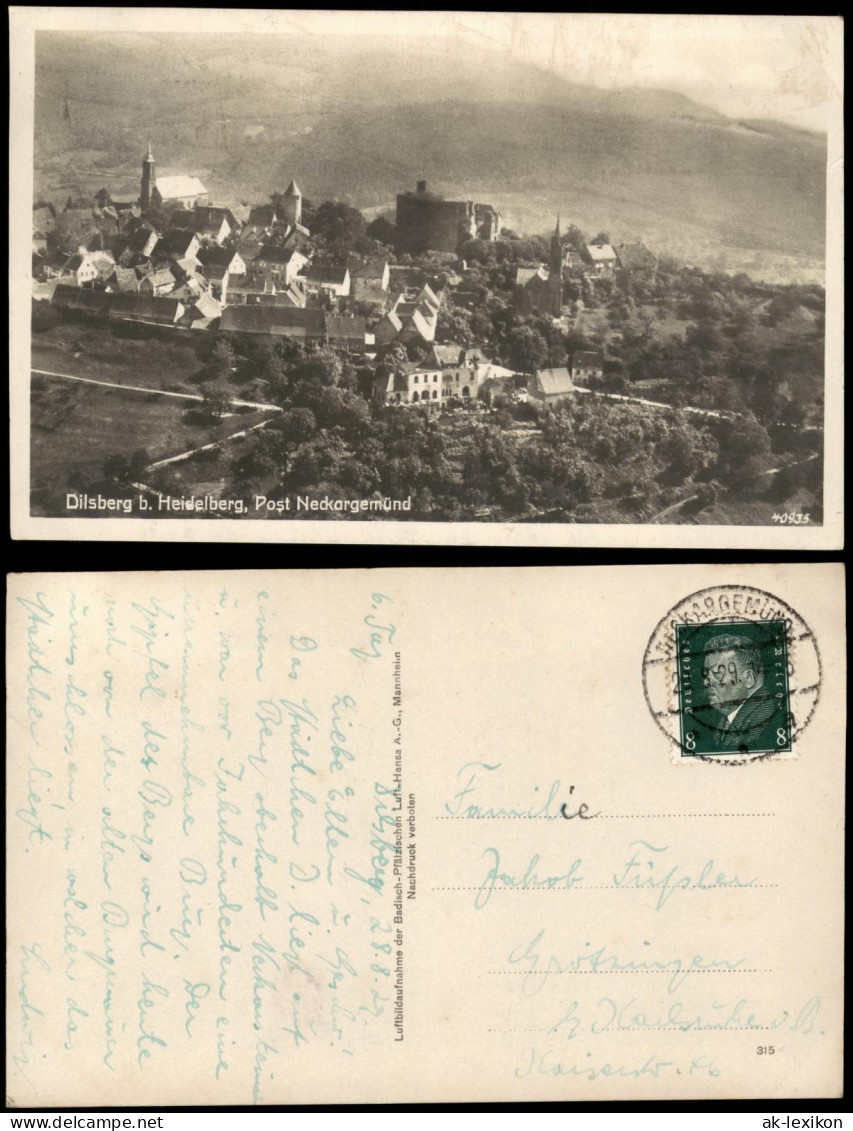 Dilsberg b. Heidelberg, Post Neckargemünd
40935
6. Tag
Dilsberg, 28.8.29.
Liebe Eltern u. Geschw.!
Das Städtchen D. liegt auf
einem Berg oberhalb Neckarsteinach
u. war vor Jahrhunderten eine
uneinnehmbare Burg. Der
Gipfel des Bergs wird heute
noch von der alten Burgmauer
umschlossen, in welcher das
Städtchen liegt.
Ludwig.
Luftbildaufnahme der Badisch-Pfälzischen Luft-Hansa A.-G., Mannheim
Nachdruck verboten
NECKARGEMÜND
Deutsches Reich
8 8
Familie
Jakob Füßler
Grötzingen
b/ Karlsruhe i. B.
Kaiserstr. 46
315
ak-ansichtskarten.de
ak-lexikon